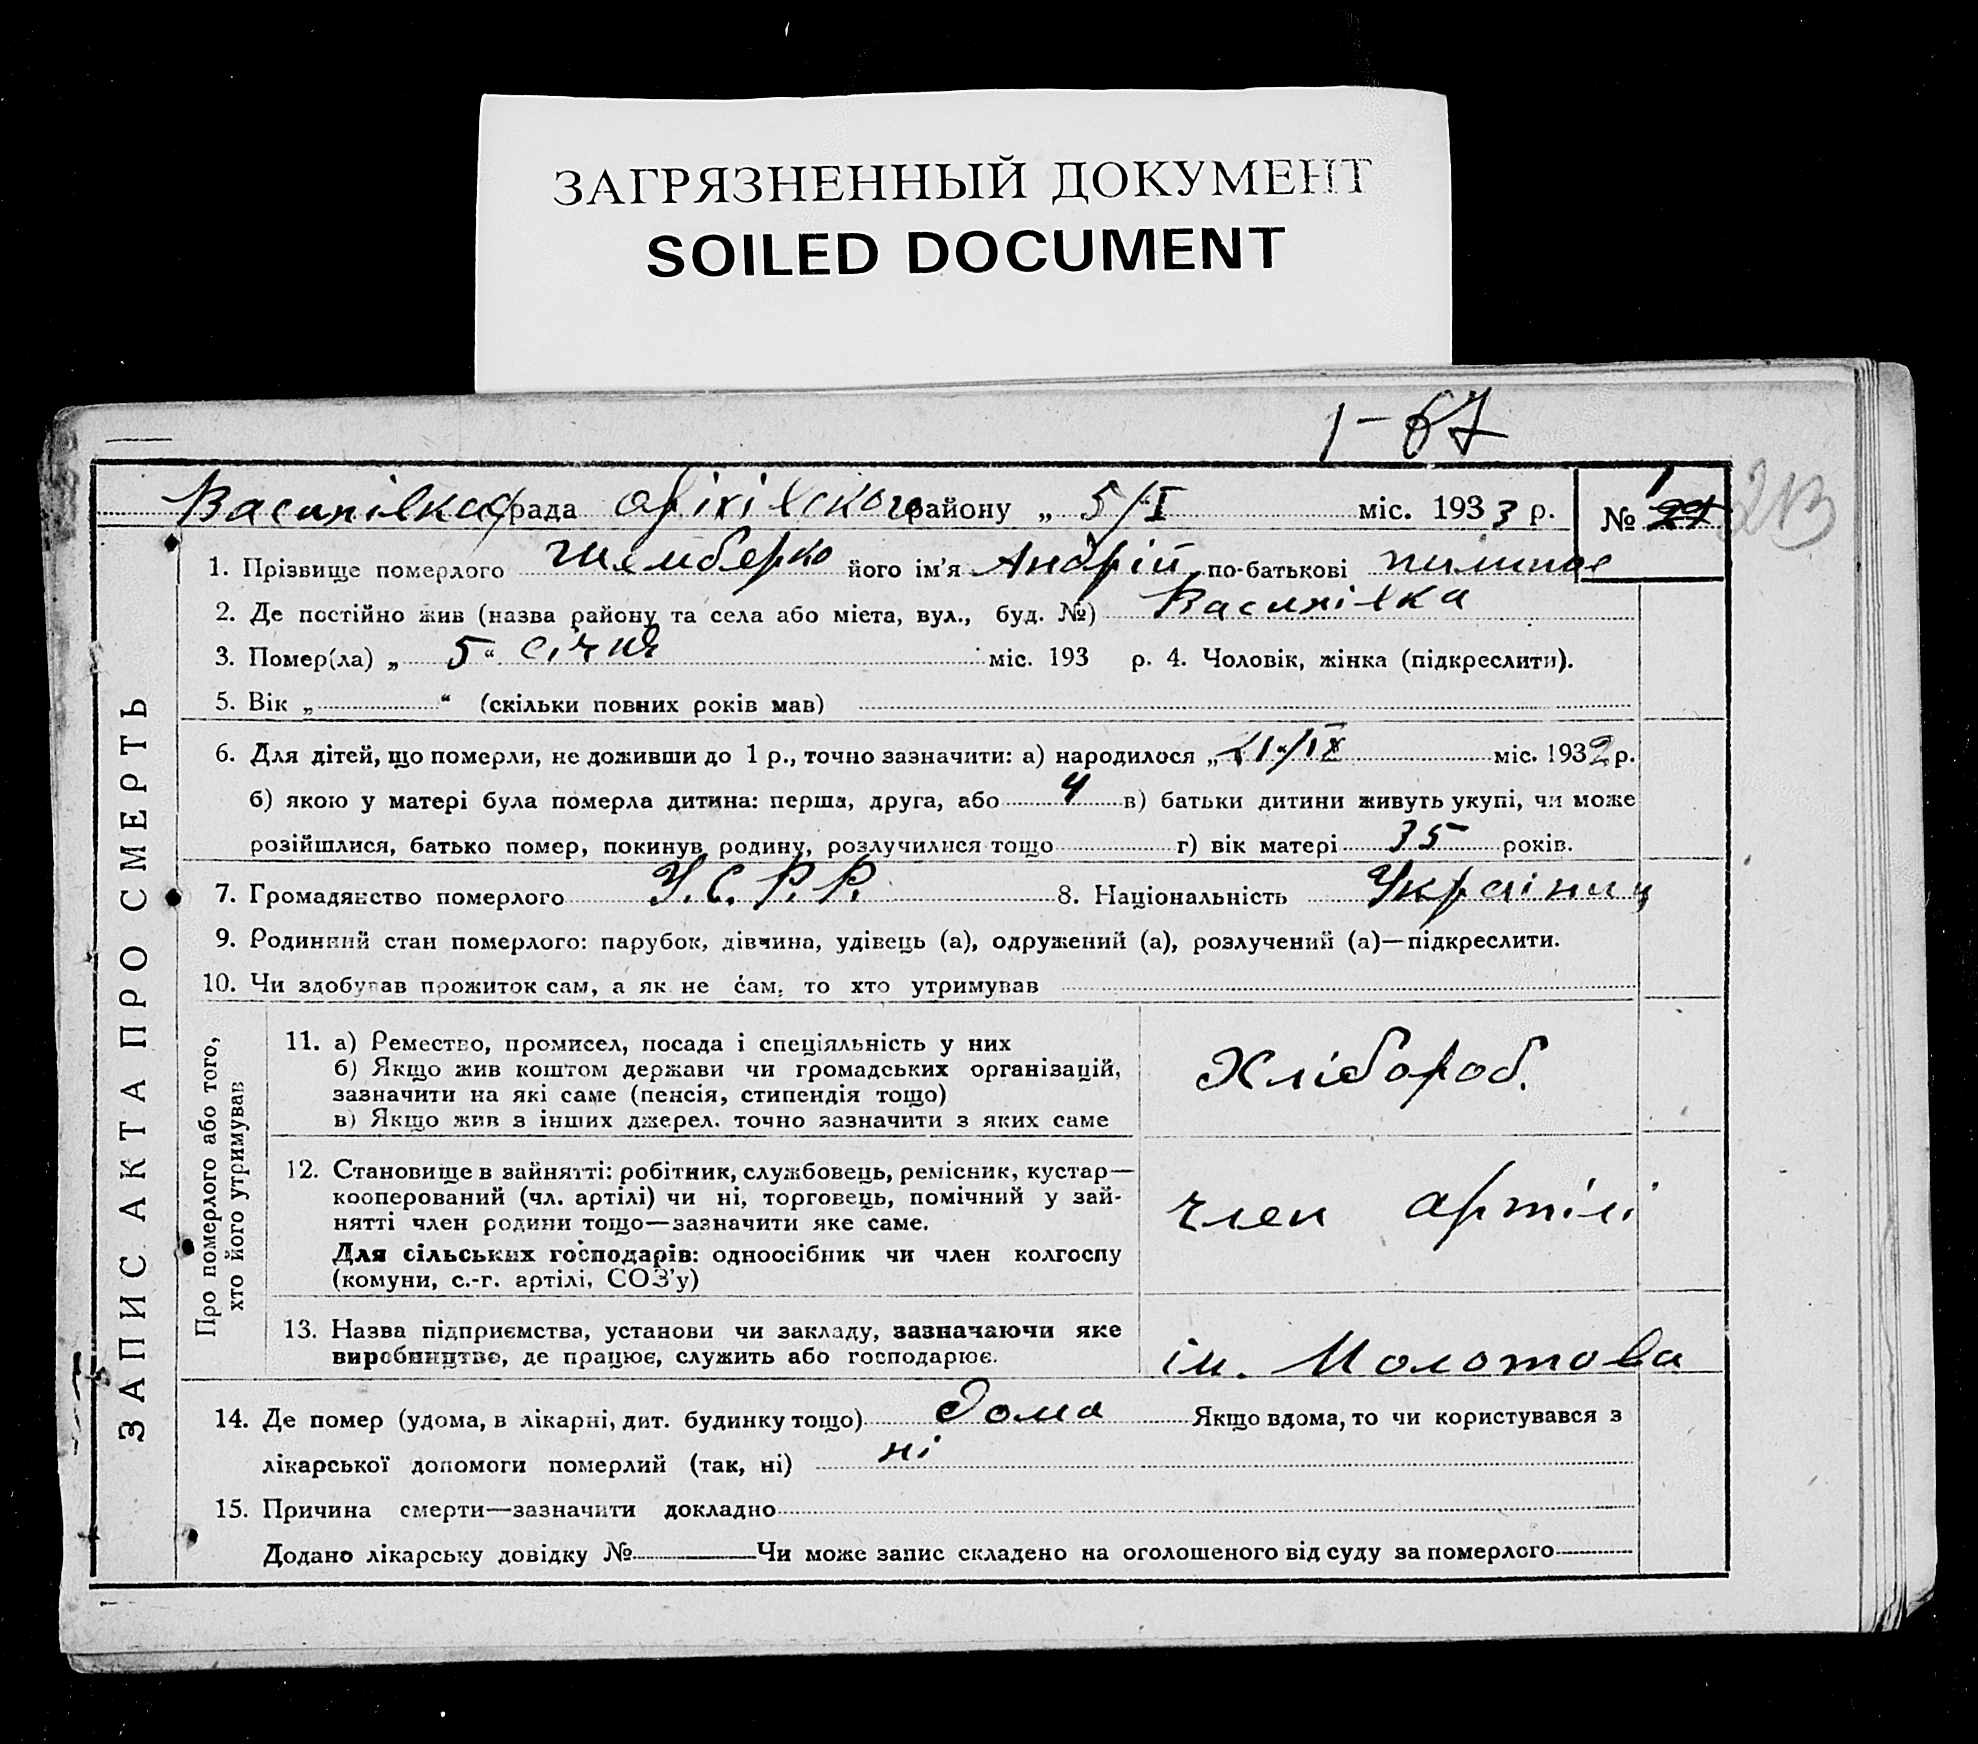 ЗАГРЯЗНЕННЫЙ ДОКУМЕНТ
SOILED DOCUMENT
1-67
рада Оріхівского району „ 5/I міс. 1933 р. № 1
213
1. Прізвище померлого його ім'я Андрій по-батькові
2. Де постійно жив (назва району та села або міста, вул., буд. №) Василівка
3. Помер(ла) „ 5 “ січня міс. 193 р. 4. Чоловік, жінка (підкреслити).
5. Вік „ “ (скільки повних років мав)
6. Для дітей, що померли, не доживши до 1 р., точно зазначити: а) народилося „ /IX міс. 1932 р.
б) якою у матері була померла дитина: перша, друга, або 4 в) батьки дитини живуть укупі, чи може
розійшлися, батько помер, покинув родину, розлучилися тощо г) вік матері 35 років.
7. Громадянство померлого У.С.Р.Р. 8. Національність Україниц
9. Родинний стан померлого: парубок, дівчина, удівець (а), одружений (а), розлучений (а)—підкреслити.
10. Чи здобував прожиток сам, а як не сам, то хто утримував
ЗАПИС АКТА ПРО СМЕРТЬ
Про померлого або того,
хто його утримував
11. а) Ремество, промисел, посада і спеціяльність у них
б) Якщо жив коштом держави чи громадських організацій,
зазначити на які саме (пенсія, стипендія тощо)
в) Якщо жив з інших джерел. точно зазначити з яких саме
Хлібороб.
12. Становище в зайнятті: робітник, службовець, ремісник, кустар—
кооперований (чл. артілі) чи ні, торговець, помічний у зай-
нятті член родини тощо—зазначити яке саме.
Для сільських господарів: одноосібник чи член колгоспу
(комуни, с.-г. артілі, СОЗ'у)
член артілі
13. Назва підприємства, установи чи закладу, зазначаючи яке
виробництво, де працює, служить або господарює.
ім. Молотова
14. Де помер (удома, в лікарні, дит. будинку тощо) дома Якщо вдома, то чи користувався з
лікарської допомоги померлий (так, ні) ні
15. Причина смерти—зазначити докладно
Додано лікарську довідку № Чи може запис складено на оголошеного від суду за померлого